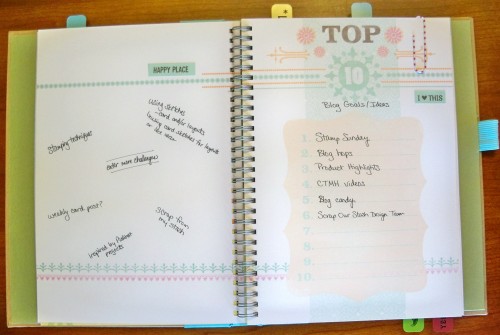 HAPPY PLACE
Using sketches
- card and/or layouts
(making card sketches for layouts
or vice versa)
Stamping techniques
enter more challenges
weekly card post?
Scrap from
my stash
Inspired by Pinterest
projects
TOP
10
I ♥ THIS
Blog Goals/Ideas
1. Stamp Sunday
2. Blog hops
3. Product Highlights
4. CTMH videos
5. Blog candy
6. Scrap Our Stash Design Team
7.
8.
9.
10.